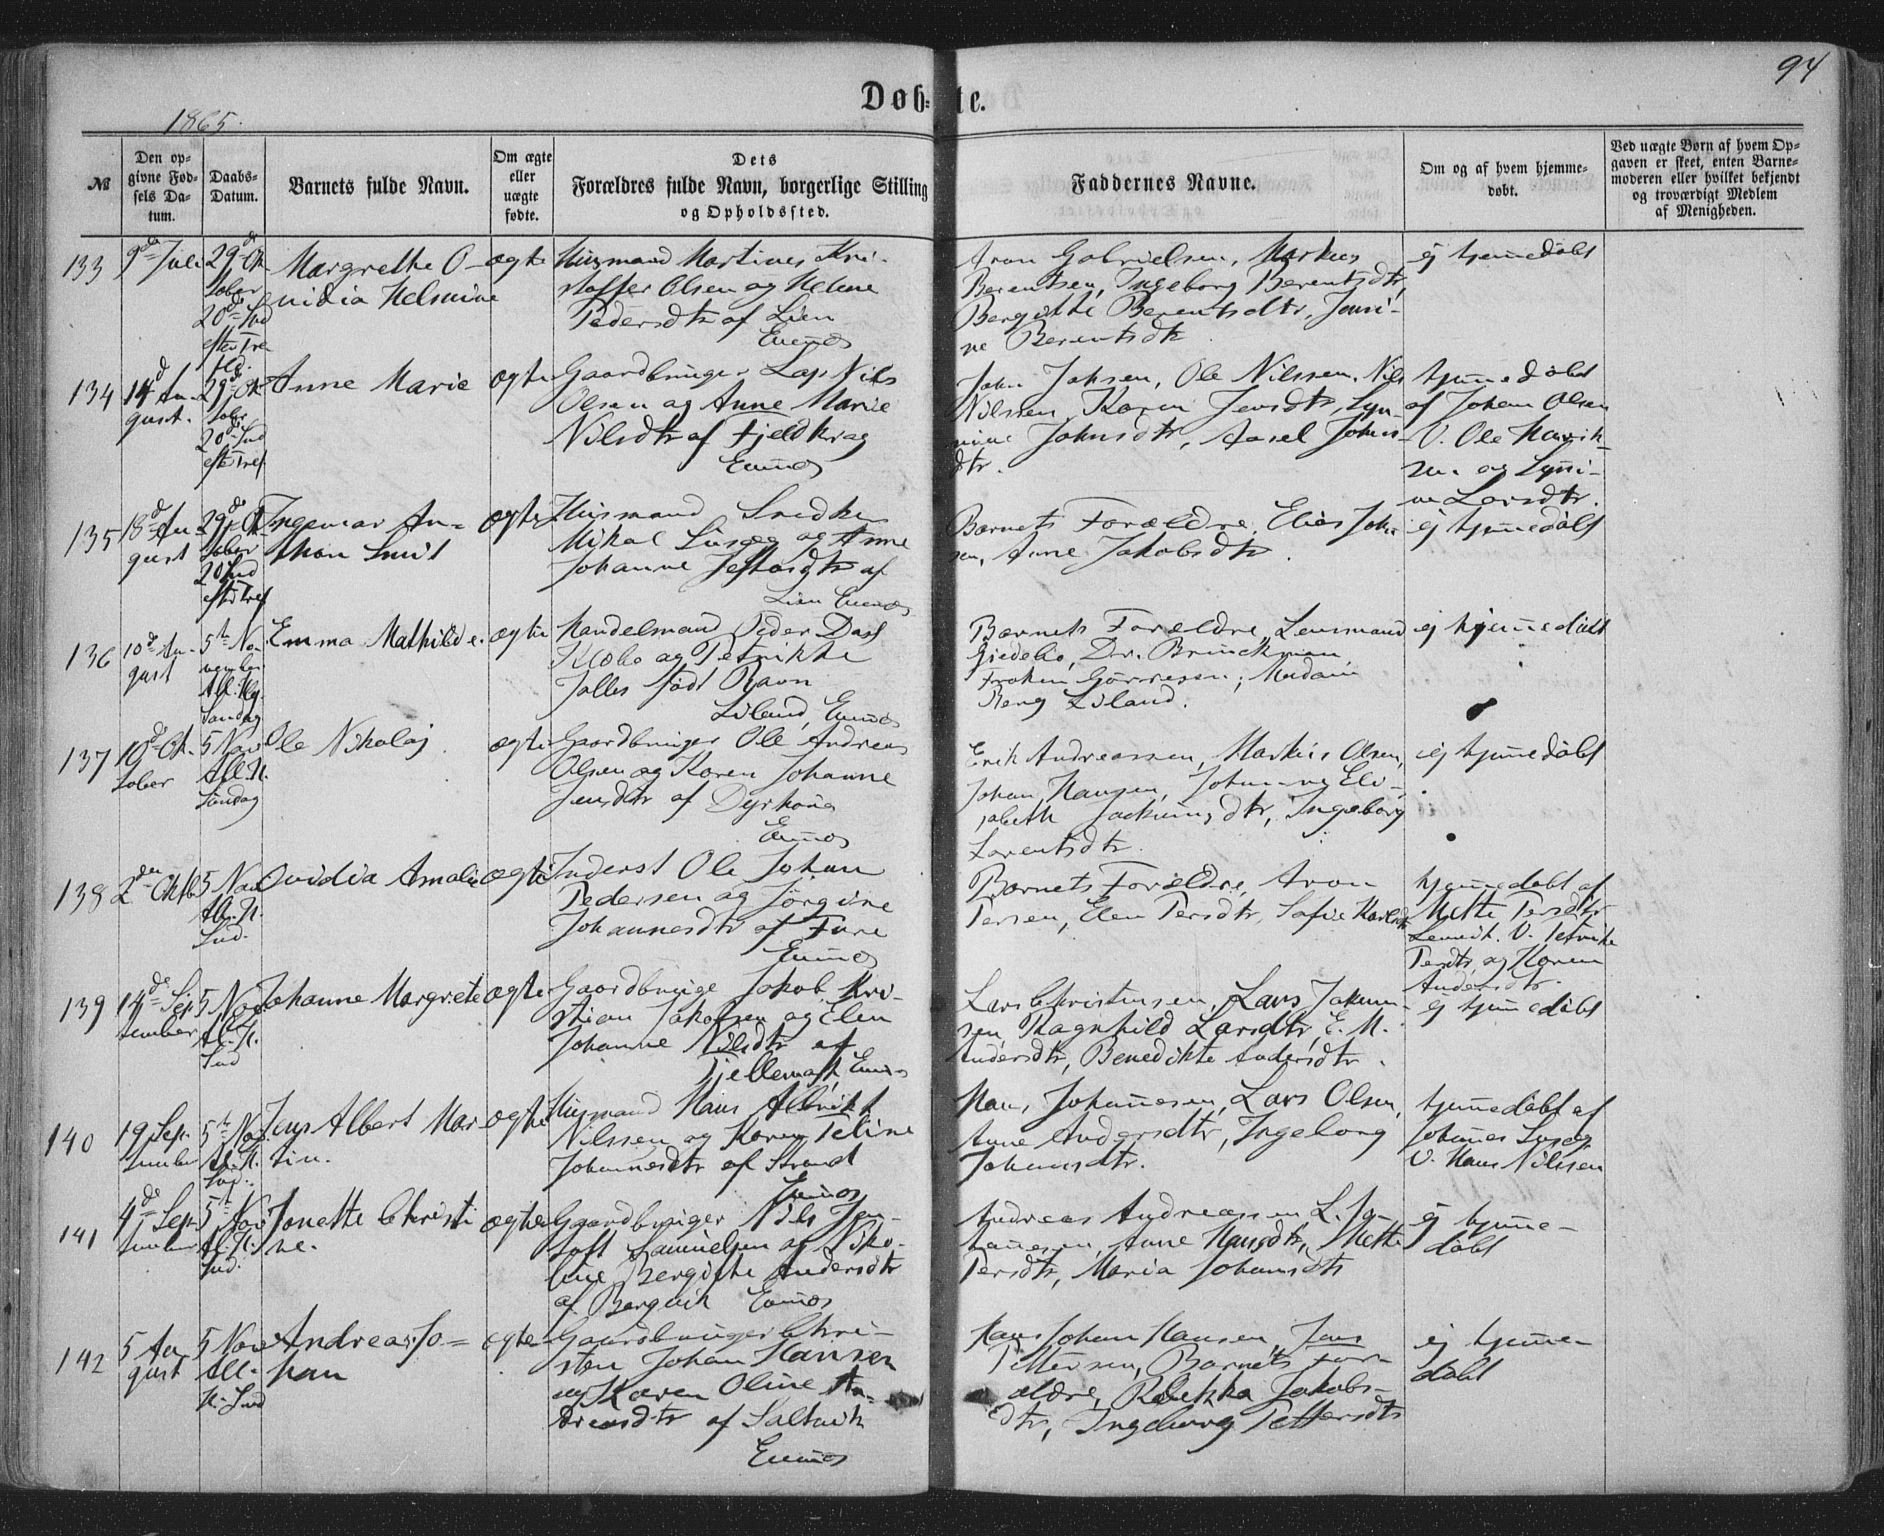 94
Døb-
te.
1865.
№
Den op-
givne Fød-
sels Da-
tum.
Daabs-
Datum.
Barnets fulde Navn.
Om ægte
eller
uægte
fødte.
Dets
Forældres fulde Navn, borgerlige Stilling
og Opholdssted.
Faddernes Navne.
Om og af hvem hjemme-
døbt.
Ved uægte Børn af hvem Op-
gaven er skeet, enten Barne-
moderen eller hvilket bekjendt
og troværdigt Medlem
af Menigheden.
133
9de Juli
29de Ok-
tober
20de Snd
efter Tre
fld.
Margrethe O-
vidia Helmine
ægte
Husmand Martines Kri-
stoffer Olsen og Helene
Pedersdtr af Lien
Evenæs
Aron Gabrielsen, Markus
Berentsen, Ingeborg Berentsdtr,
Bergitte Berentsdtr, Jensi-
ne Berentsdtr
ej hjemmedøbt
134
14d Au-
gust.
29de Ok
tober
20de Snd
efter Tref
Anne Marie
ægte
Gaardbruger Lap Nils
Olsen og Anne Marie
Nilsdtr af Fjeldkrag
Evenæs
John Johsen, Ole Nilssen, Nils
Nilssen, Karen Jensdtr,
Johnsdtr, Aasel Johns-
dtr.
hjemmedøbt
af Johan Olsen
V. Ole Henrik-
sen og
Larsdtr.
135
18de Au-
gust
29de Ok-
tober
20 Snd
efter Tref
Ingemar An-
thon Smit
ægte
Husmand Snedker
Mikal Liusæg og Anne
Johanne Jeftasdtr af
Lien Evenæs
Barnets Forældre, Elias John
sen, Anne Jakobsdtr.
ej hjemmedøbt
136
10de Au-
gust
5te No-
vember
All. Hg.
Søndag
Emma Mathilde.
ægte
Handelmand Peder Dass
Klæbo og Petrikke
Jalles født Ravn
Liland, Evenæs
Barnets Forældre, Lensmand
Giedebo, Dr. Brinckman,
Frøken Gørrissen, Madam
Berg Liland.
ej hjemmedøbt
137
19de Ok-
tober
5 Nov
All. H.
Søndag
Ole Nikolaj
ægte
Gaardbruger Ole Andreas
Olsen og Karen Johanne
Jensdtr af Dyrhaug
Evenæs
Erik Andreassen, Markus Olsen,
Johan Hansen, Johanne Eli-
sabeth Jochumsdtr, Ingeborg
Lorentsdtr.
ej hjemmedøbt
138
2den Oktb
5 Nov
All. H.
Snd.
Ovidia Amalie
ægte
Inderst Ole Johan
Pedersen og Jørgine
Johannesdtr af Fure
Evenæs
Barnets Forældre, Aron
Persen, Elen Persdtr, Sofie Karlsdtr
hjemmedøbt af
Mette Persdtr
V. Petrike
Persdtr, og Karen
Andersdtr.
139
14de Sep-
tember
5 Nov
All. H.
Snd
Johanne Margrete
ægte
Gaardbruge Jakob Kri-
stian Jakobsen og Elen
Johanne Nilsdtr af
Tjellemark, Evenæs
Lars Christensen, Lars Jakob-
sen, Ragnhild Larsdtr, E. M.
Andersdtr, Benedikte Andersdtr.
ej hjemmedøbt
140
19 Sep-
tember
5te Nov
All. H.
Snd.
Jens Albert Mar
tin.
ægte
Husmand Hans Albrikt
Nilssen og Karen Peline
Johannesdtr af Strand
Evenæs
Hans Johannesen, Lars Olsen,
Anne Andersdtr, Ingeborg
Johansdtr.
hjemmedøbt af
Johannes Liusæg
V. Hans Nilssen
141
4de Sep-
tember
5te Nov
All. H.
Snd.
Jonette Christi
ne.
ægte
Gaardbruger Nils Jen-
toft Samuelsen og Niko-
line Bergitte Andersdtr
af Bergvik Evenæs
Andreas Andreassen L. Jo-
hannesen, Anne Hansdtr, Mette
Persdtr, Maria Johansdtr
ej hjemme-
døbt
142
5 Au-
gust
5 Nov
All.
H. Snd
Andreas Jo-
han
ægte
Gaardbruger Chri-
sten Johan Hansen
og Karen Oline An-
dreasdtr af Saltvik
Evenæs
Hans Johan Hansen, Jens
Pettersen, Barnets For-
ældre, Rebekka Jakobs-
dtr, Ingeborg Pettersdtr
ej hjemme-
døbt